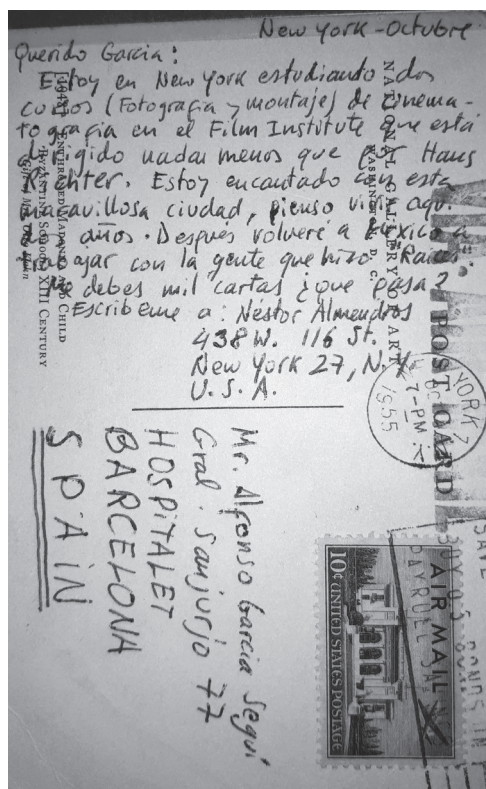 New York - Octubre
Querido Garcia:
Estoy en New York estudiando dos
cursos (Fotografia y montaje) de cinema-
tografia en el Film Institute que está
dirigido nada menos que por Hans
Richter. Estoy encantado con esta
maravillosa ciudad, pienso vivir aquí
años. Después volveré a Mexico a
trabajar con la gente que hizo "Raices".
Me debes mil cartas ¿que pasa?
Escribeme a: Néstor Almendros
438 W. 116 St.
New York 27, N.Y.
U.S.A.
Mr. Alfonso Garcia Seguí
Gral. Sanjurjo 77
HOSPITALET
BARCELONA
SPAIN
NATIONAL GALLERY OF ART
WASHINGTON, D. C.
POST CARD
ENTHRONED MADONNA AND CHILD
BYZANTINE SCHOOL, XIII CENTURY
YORK
7-PM
1955
AIR MAIL
10¢ UNITED STATES POSTAGE
SAVE
BUY US BONDS IN
PAYROLL SA